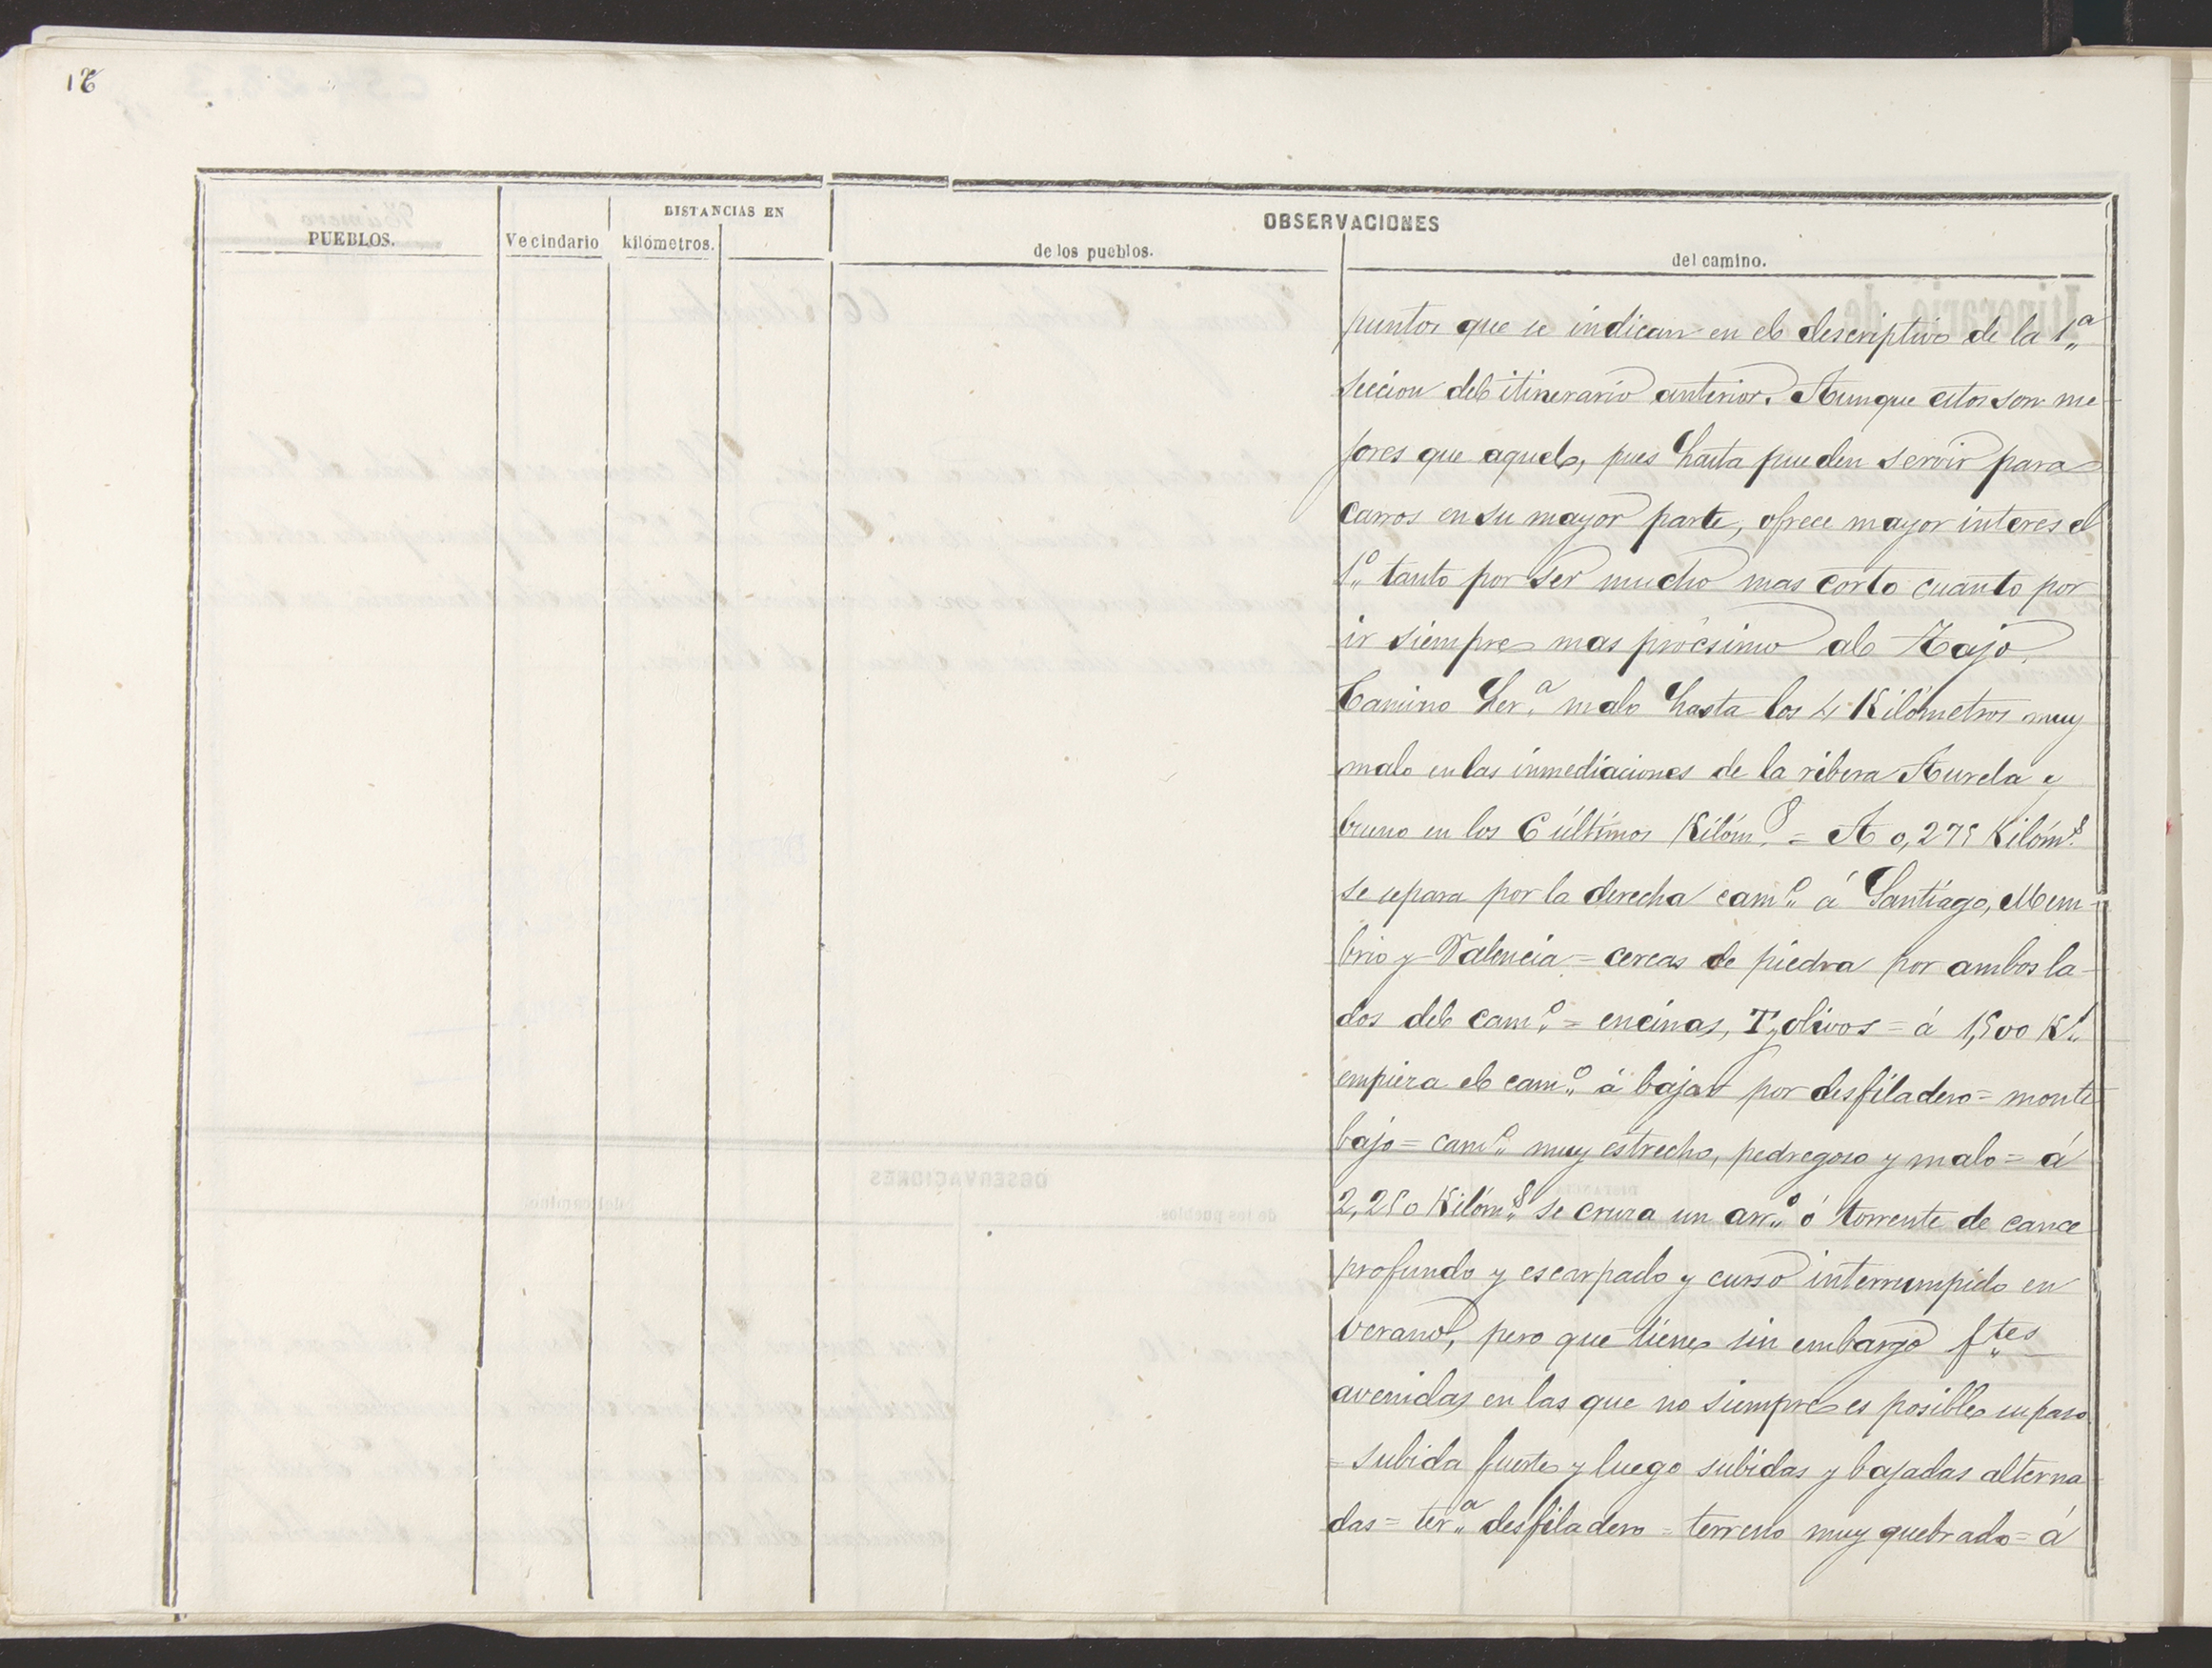 16
PUEBLOS.
Vecindario
DISTANCIAS EN
kilómetros.
OBSERVACIONES
de los pueblos.
del camino.
puntos que se indican en el descriptivo de la 1.ª
seccion del itinerario anterior. Aunque estos son me
jores que aquel, pues hasta pueden servir para
carros en su mayor parte, ofrece mayor interes el
1.º tanto por ser mucho mas corto cuanto por
ir siempre mas procsimo al Tajo.
Camino Her.ª malo hasta los 4 Kilómetros muy
malo en las inmediaciones de la ribera Aurela y
bueno en los 6 últimos Kilóm.s = A 0,275 Kilóm.s
se separa por la derecha cam.º á Santiago, Mem-
brio y Valencia = cercas de piedra por ambos la-
dos del cam.º = encinas, T, olivos = á 1,500 K.s
empieza el cam.º á bajar por desfiladero = monte
bajo = cam.º muy estrecho, pedregoso y malo = á
2,250 Kilóm.s se cruza un arr.º ó torrente de cauce
profundo y escarpado y curso interrumpido en
verano, pero que tiene sin embargo f.tes
avenidas en las que no siempre es posible su paso
= subida fuerte y luego subidas y bajadas alterna
das = ter.ª desfiladero = terreno muy quebrado = á